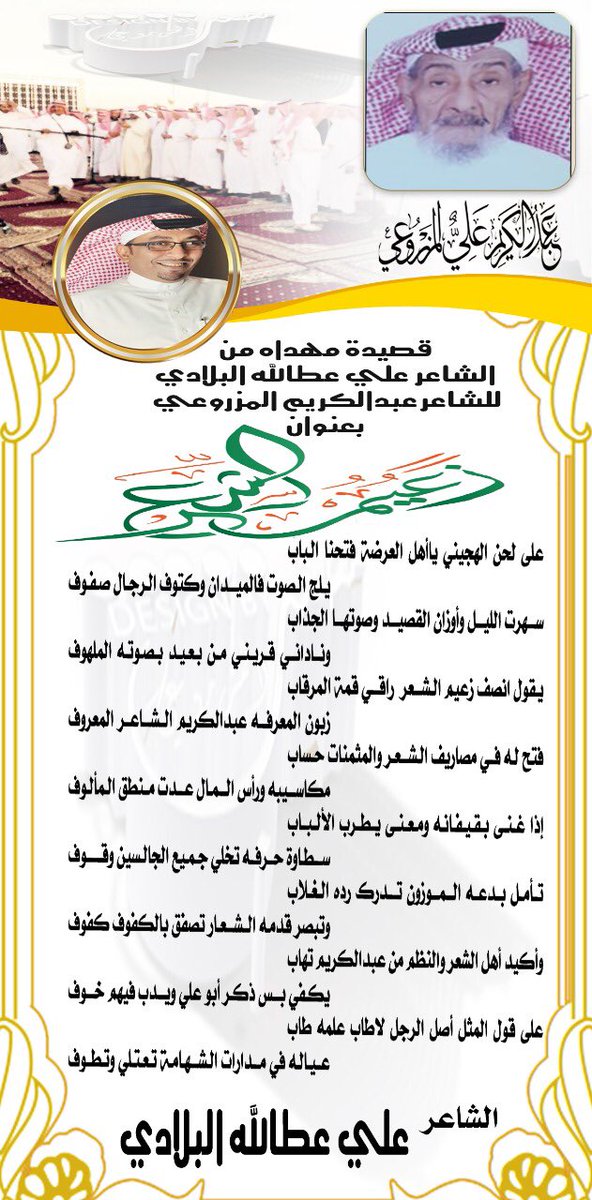 عبدالكريم علي المزروعي
قصيدة مهداه من
الشاعر علي عطالله البلادي
للشاعر عبدالكريم المزروعي
بعنوان
زعيم الشعر
على لحن الهجيني ياأهل العرضة فتحنا الباب
يلج الصوت فالميدان وكتوف الرجال صفوف
سهرت الليل وأوزان القصيد وصوتها الجذاب
وناداني قريني من بعيد بصوته الملهوف
يقول انصف زعيم الشعر راقي قمة المرقاب
زبون المعرفه عبدالكريم الشاعر المعروف
فتح له في مصاريف الشعر والمثمنات حساب
مكاسيبه ورأس المال عدت منطق المألوف
إذا غنى بقيفانه ومعنى يطرب الألباب
سطاوة حرفه تخلي جميع الجالسين وقوف
تأمل بدعه الموزون تدرك رده الغلاب
وتبصر قدمه الشعار تصفق بالكفوف كفوف
وأكيد أهل الشعر والنظم من عبدالكريم تهاب
يكفي بس ذكر أبو علي ويدب فيهم خوف
على قول المثل أصل الرجل لاطاب علمه طاب
عياله في مدارات الشهامة تعتلي وتطوف
الشاعر علي عطالله البلادي